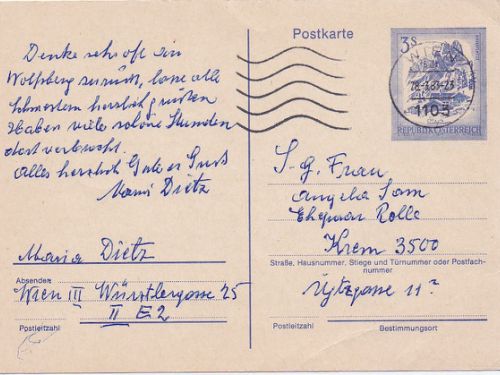 Denke sehr oft an
Wolfsberg zurück, lasse alle
Schwestern herzlich grüßen
Haben viele schöne Stunden
dort verbracht.
Alles herzlich Gute er Gruß
Maria Dietz
Maria Dietz
Absender:
Wien III Würstlergasse 25
II E 2
Postleitzahl
Postkarte
3 S
WIEN
28.-3.83-23
1103
REPUBLIK ÖSTERREICH
S.g. Frau
Angela Sam
Ehepaar Rolle
Krem 3500
Straße, Hausnummer, Stiege und Türnummer oder Postfach-
nummer
11?
Postleitzahl
Bestimmungsort